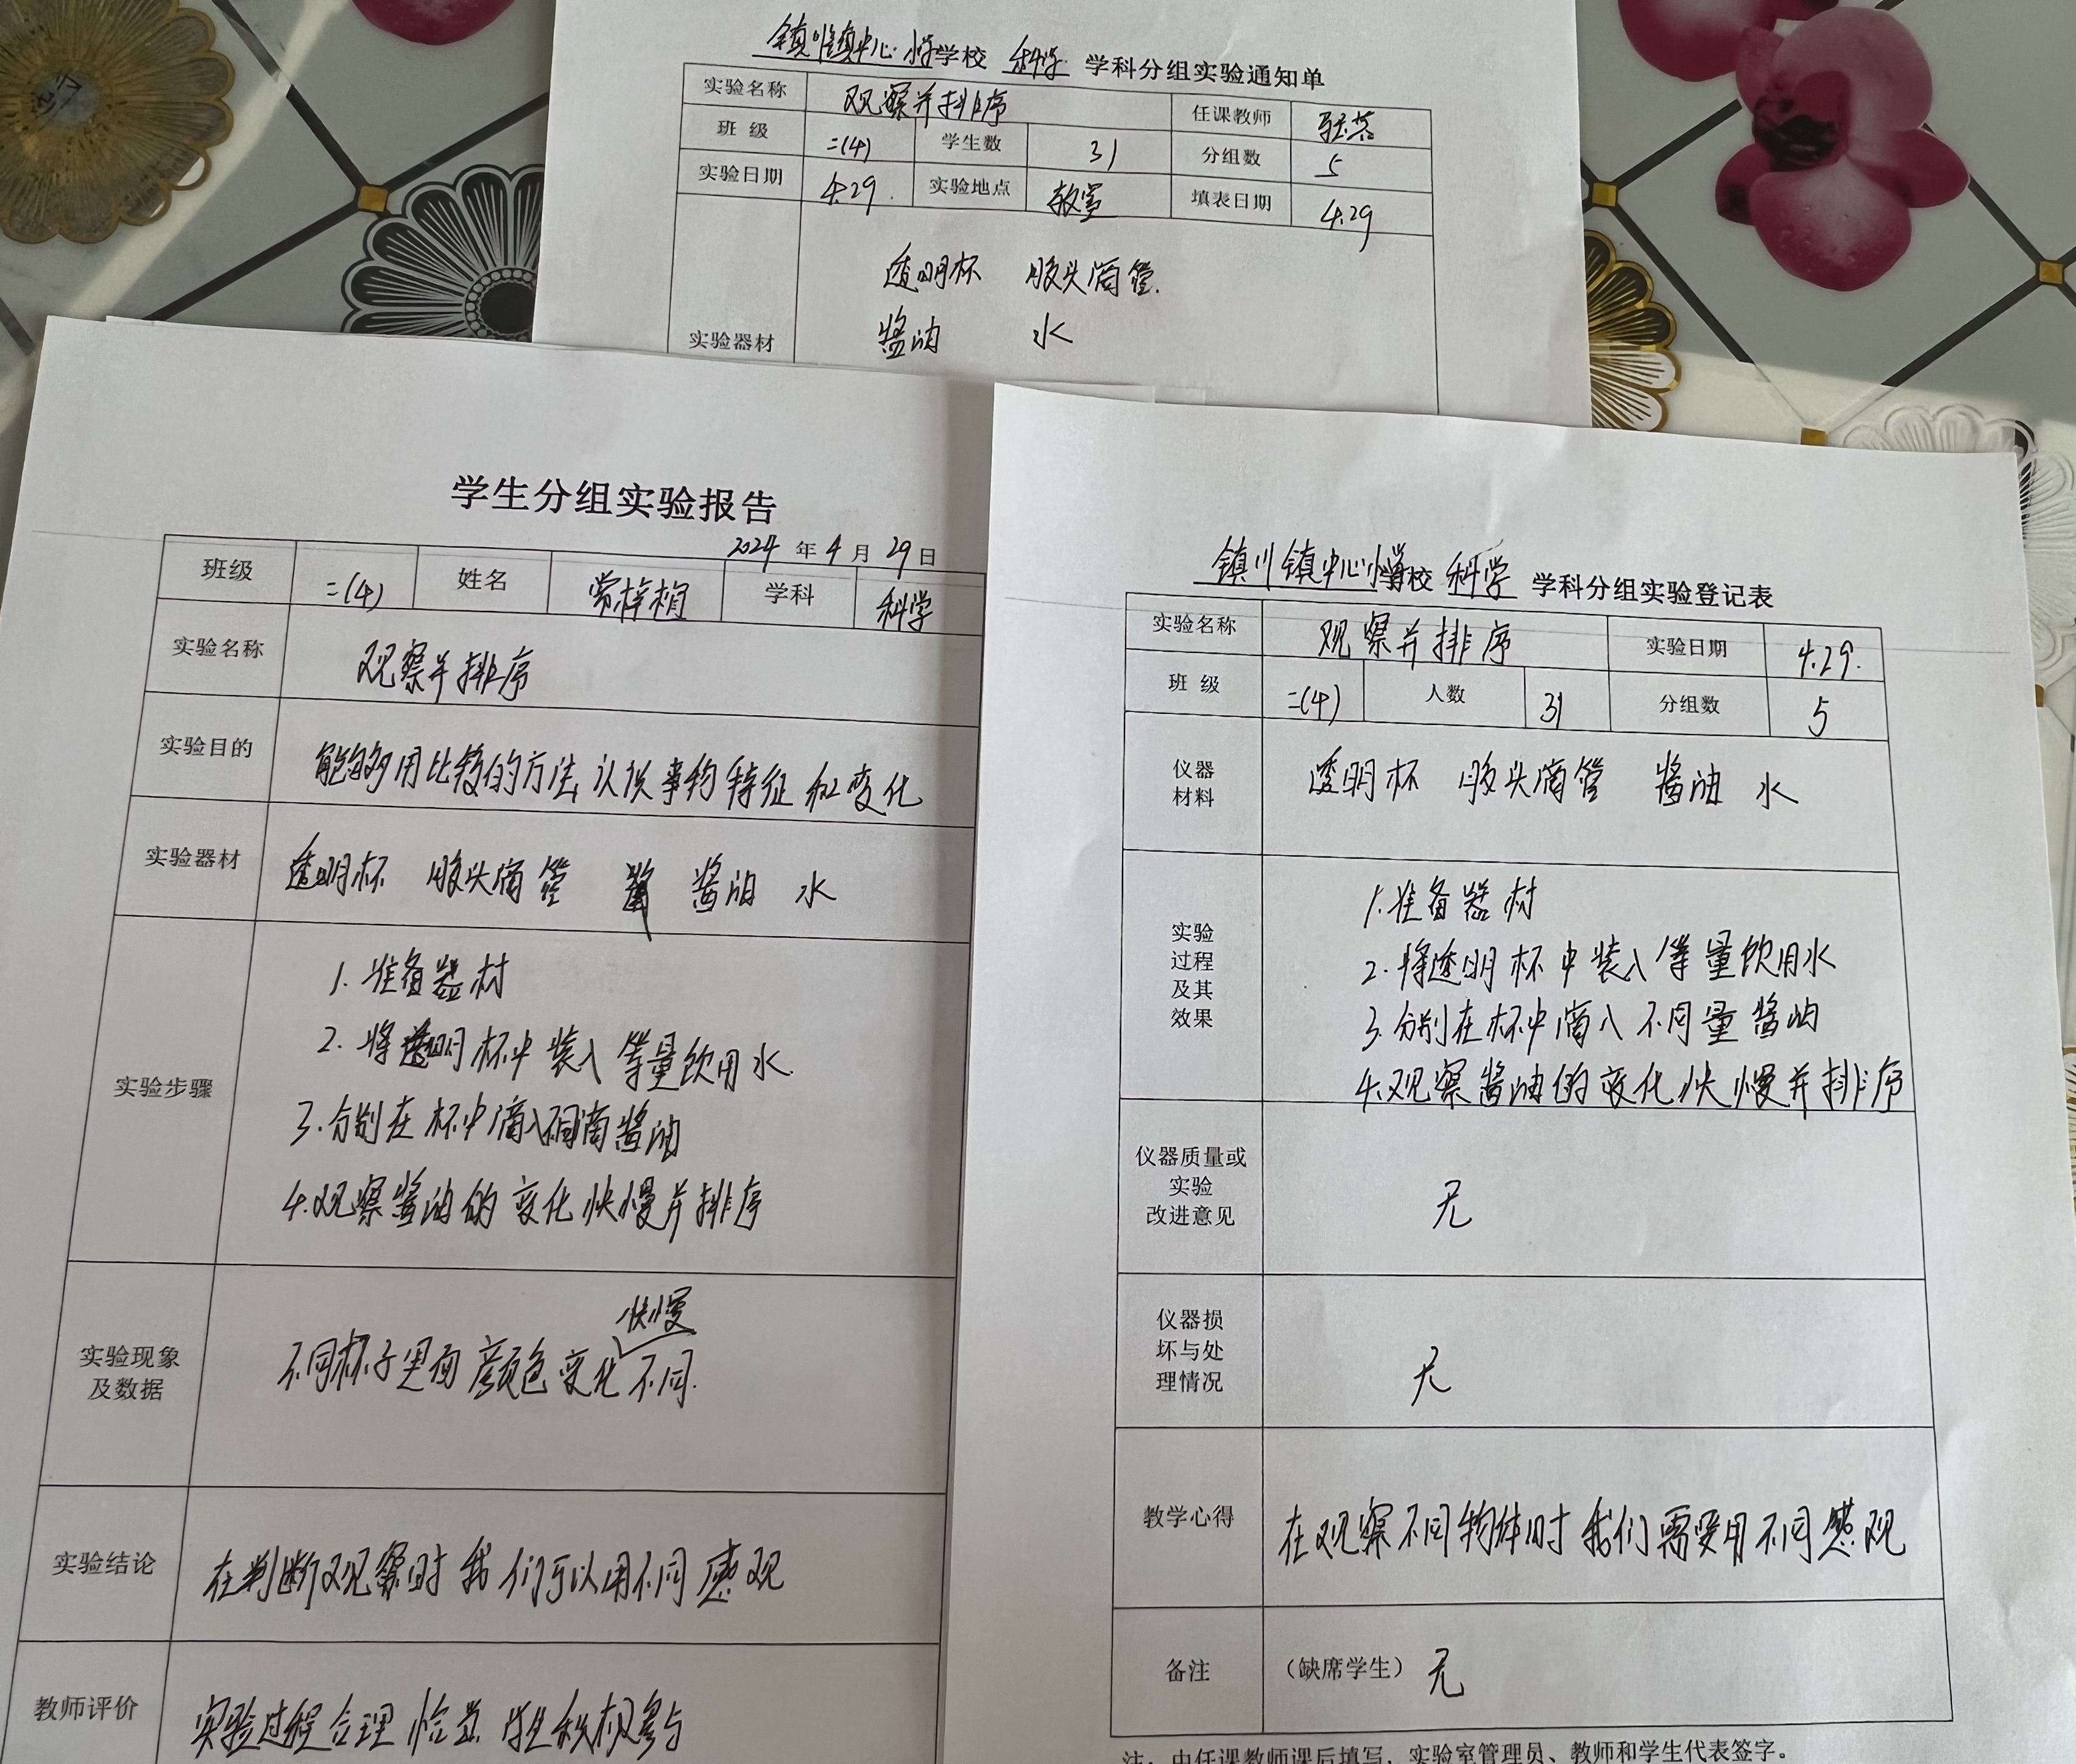 镇川镇中心小学学校 科学 学科分组实验通知单
实验名称 观察并排序 任课教师
班 级 二(4) 学生数 31 分组数 5
实验日期 4.29. 实验地点 教室 填表日期 4.29
实验器材 透明杯 胶头滴管.
酱油 水
学生分组实验报告
2024 年 4 月 29 日
班级 二(4) 姓名 学科 科学
实验名称 观察并排序
实验目的 能够用比较的方法,认识事物特征和变化
实验器材 透明杯 胶头滴管 酱油 水
实验步骤
1.准备器材
2.将透明杯中装入等量饮用水.
3.分别在杯中滴入不同滴酱油
4.观察酱油的变化快慢并排序
实验现象
及数据
不同杯子里面颜色变化快慢不同.
实验结论 在判断观察时我们可以用不同感观
教师评价 实验过程合理恰当 学生积极参与
镇川镇中心小学学校 科学 学科分组实验登记表
实验名称 观察并排序 实验日期 4.29.
班 级 二(4) 人数 31 分组数 5
仪器
材料
透明杯 胶头滴管 酱油 水
实验
过程
及其
效果
1.准备器材
2.将透明杯中装入等量饮用水
3.分别在杯中滴入不同量酱油
4.观察酱油的变化快慢并排序
仪器质量或
实验
改进意见
无
仪器损
坏与处
理情况
无
教学心得 在观察不同物体时我们需要用不同感观
备注 (缺席学生) 无
注:由任课教师课后填写,实验室管理员、教师和学生代表签字。